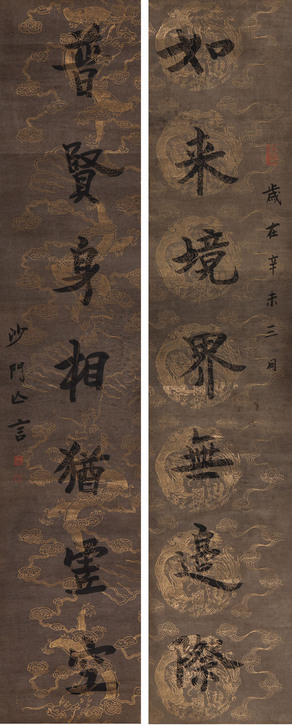 如来境界無邊際
歲在辛未三月
普賢身相猶虛空
沙門言